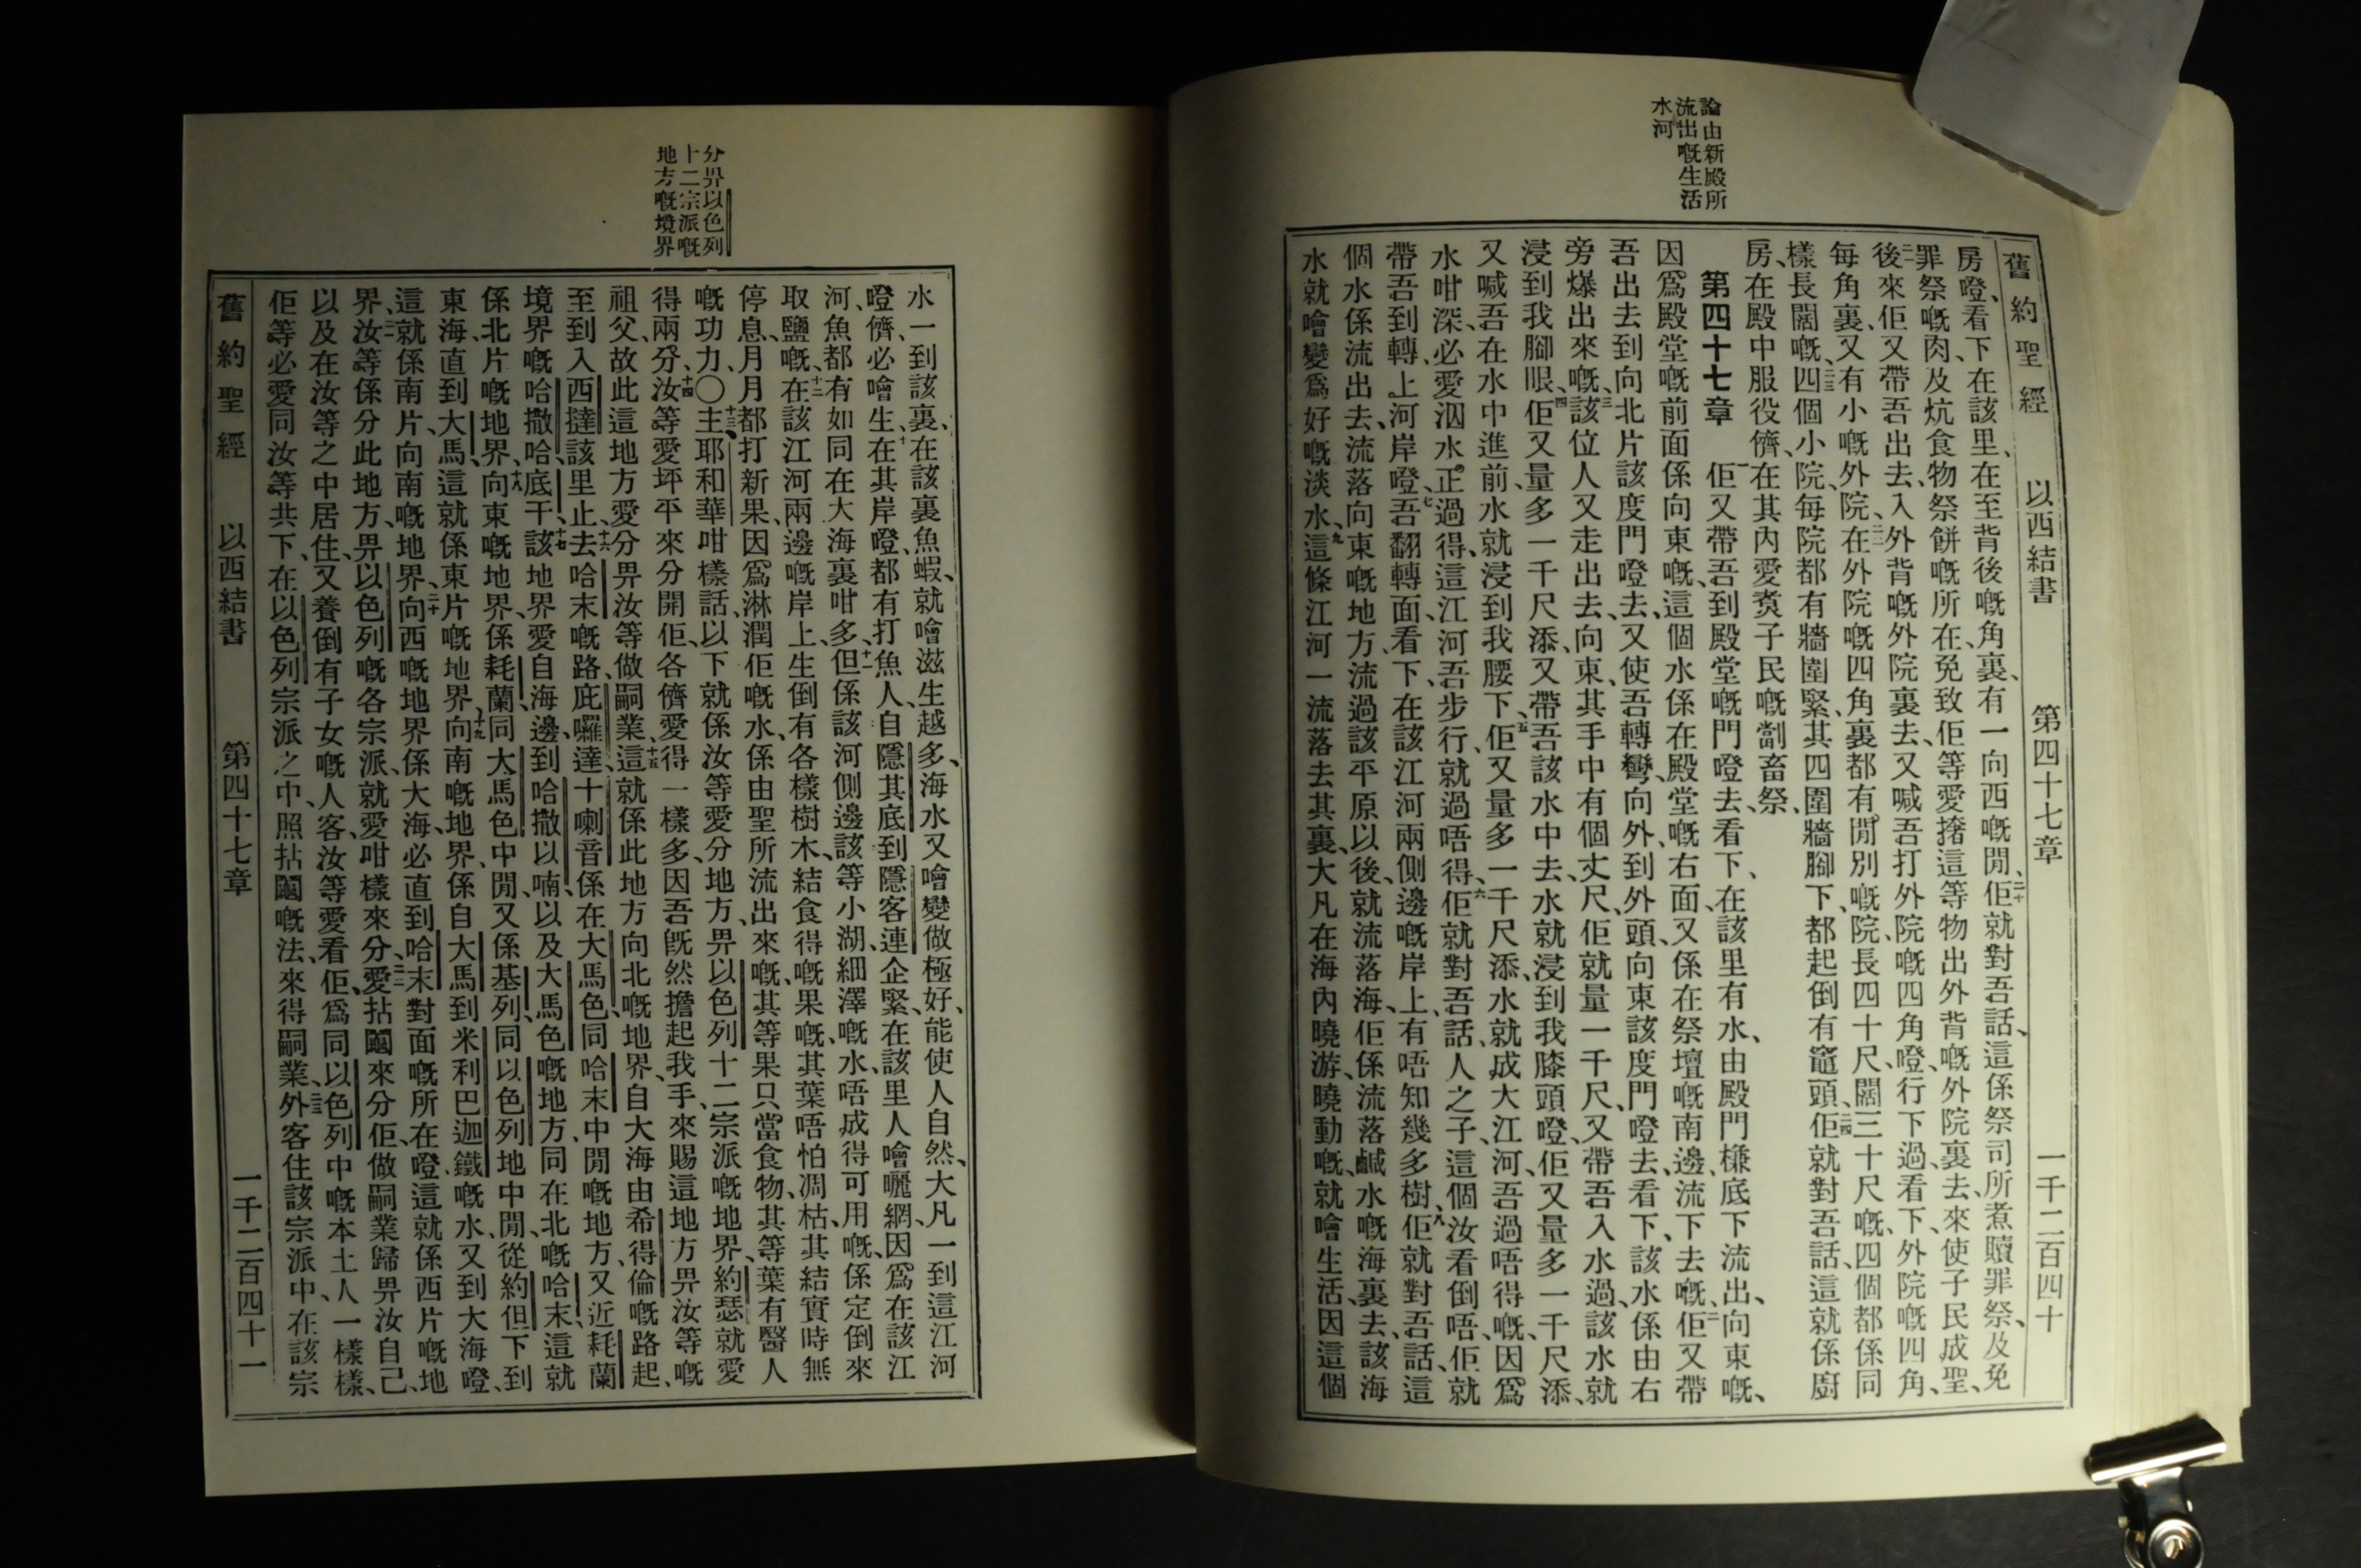 論由新殿所
流出嘅生活
水河
舊約聖經 以西結書 第四十七章 一千二百四十
房嶝、看下、在該里、在至背後嘅角裏、有一向西嘅閒、二十佢就對吾話、這係祭司所煮贖罪祭、及免
罪祭嘅肉、及炕食物祭餅嘅所在、免致佢等愛撘這等物出外背嘅外院裏去、來使子民成聖、
二一後來佢又帶吾出去、入外背嘅外院裏去、又喊吾打外院嘅四角嶝、行下過、看下、外院嘅四角、
每角裏、又有小嘅外院、二二在外院嘅四角裏、都有閒別嘅院、長四十尺、闊三十尺嘅、四個都係同
樣長闊嘅、二三四個小院、每院都有牆圍緊、其四圍牆腳下、都起倒有竈頭、二四佢就對吾話、這就係廚
房、在殿中服役儕、在其內愛煑子民嘅劏畜祭、
第四十七章 一佢又帶吾到殿堂嘅門嶝去、看下、在該里有水、由殿門槺底下流出、向東嘅、
因爲殿堂嘅前面係向東嘅、這個水係在殿堂嘅右面、又係在祭壇嘅南邊、流下去嘅、二佢又帶
吾出去到向北片該度門嶝去、又使吾轉彎、向外到外頭、向東該度門嶝去、看下、該水係由右
旁爆出來嘅、三該位人又走出去、向東、其手中有個丈尺、佢就量一千尺、又帶吾入水過、該水就
浸到我腳眼、四佢又量多一千尺添、又帶吾該水中去、水就浸到我膝頭嶝、佢又量多一千尺添、
又喊吾在水中進前、水就浸到我腰下、五佢又量多一千尺添、水就成大江河、吾過唔得嘅、因爲
水咁深、必愛泅水、正過得、這江河吾步行、就過唔得、六佢就對吾話、人之子、這個汝看倒唔、佢就
帶吾到轉上河岸嶝、七吾翻轉面、看下、在該江河兩側邊嘅岸上、有唔知幾多樹、八佢就對吾話、這
個水係流出去、流落向東嘅地方、流過該平原以後、就流落海、佢係流落鹹水嘅海裏去、該海
水就噲變爲好嘅淡水、九這條江河一流落去其裏、大凡在海內曉游、曉動嘅、就噲生活、因這個
分畀以色列
十二宗派嘅
地方嘅境界
水一到該裏、在該裏魚蝦、就噲滋生越多、海水又噲變做極好、能使人自然、大凡一到這江河
嶝儕、必噲生、十在其岸嶝、都有打魚人、自隱其底到隱客連企緊、在該里人噲曬網、因爲在該江
河、魚都有如同在大海裏咁多、十一但係該河側邊該等小湖、細澤嘅水、唔成得可用嘅、係定倒來
取鹽嘅、十二在該江河兩邊嘅岸上、生倒有各樣樹木、結食得嘅果嘅、其葉唔怕凋枯、其結實時無
停息、月月都打新果、因爲淋潤佢嘅水、係由聖所流出來嘅、其等果只當食物、其等葉有醫人
嘅功力、〇十三主耶和華咁樣話、以下就係汝等愛分地方、畀以色列十二宗派嘅地界、約瑟就愛
得兩分、十四汝等愛坪平來分開佢、各儕愛得一樣多、因吾旣然擔起我手、來賜這地方畀汝等嘅
祖父、故此這地方愛分畀汝等做嗣業、十五這就係此地方向北嘅地界、自大海由希得倫嘅路起、
至到入西撻該里止、十六去哈末嘅路庇囉達、十喇音係在大馬色同哈末中閒嘅地方、又近耗蘭
境界嘅哈撒哈底干、十七該地界愛自海邊、到哈撒以喃、以及大馬色嘅地方、同在北嘅哈末、這就
係北片嘅地界、十八向東嘅地界、係耗蘭同大馬色中閒、又係基列、同以色列地中閒、從約但下到
東海、直到大馬、這就係東片嘅地界、十九向南嘅地界、係自大馬到米利巴迦鐵嘅水、又到大海嶝、
這就係南片、向南嘅地界、二十向西嘅地界係大海、必直到哈末對面嘅所在嶝、這就係西片嘅地
界、二一汝等係分此地方、畀以色列嘅各宗派、就愛咁樣來分、二二愛拈鬮來分佢、做嗣業歸畀汝自己、
以及在汝等之中居住、又養倒有子女嘅人客、汝等愛看佢、爲同以色列中嘅本土人一樣樣、
佢等必愛同汝等共下、在以色列宗派之中、照拈鬮嘅法、來得嗣業、二三外客住該宗派中、在該宗
舊約聖經 以西結書 第四十七章 一千二百四十一